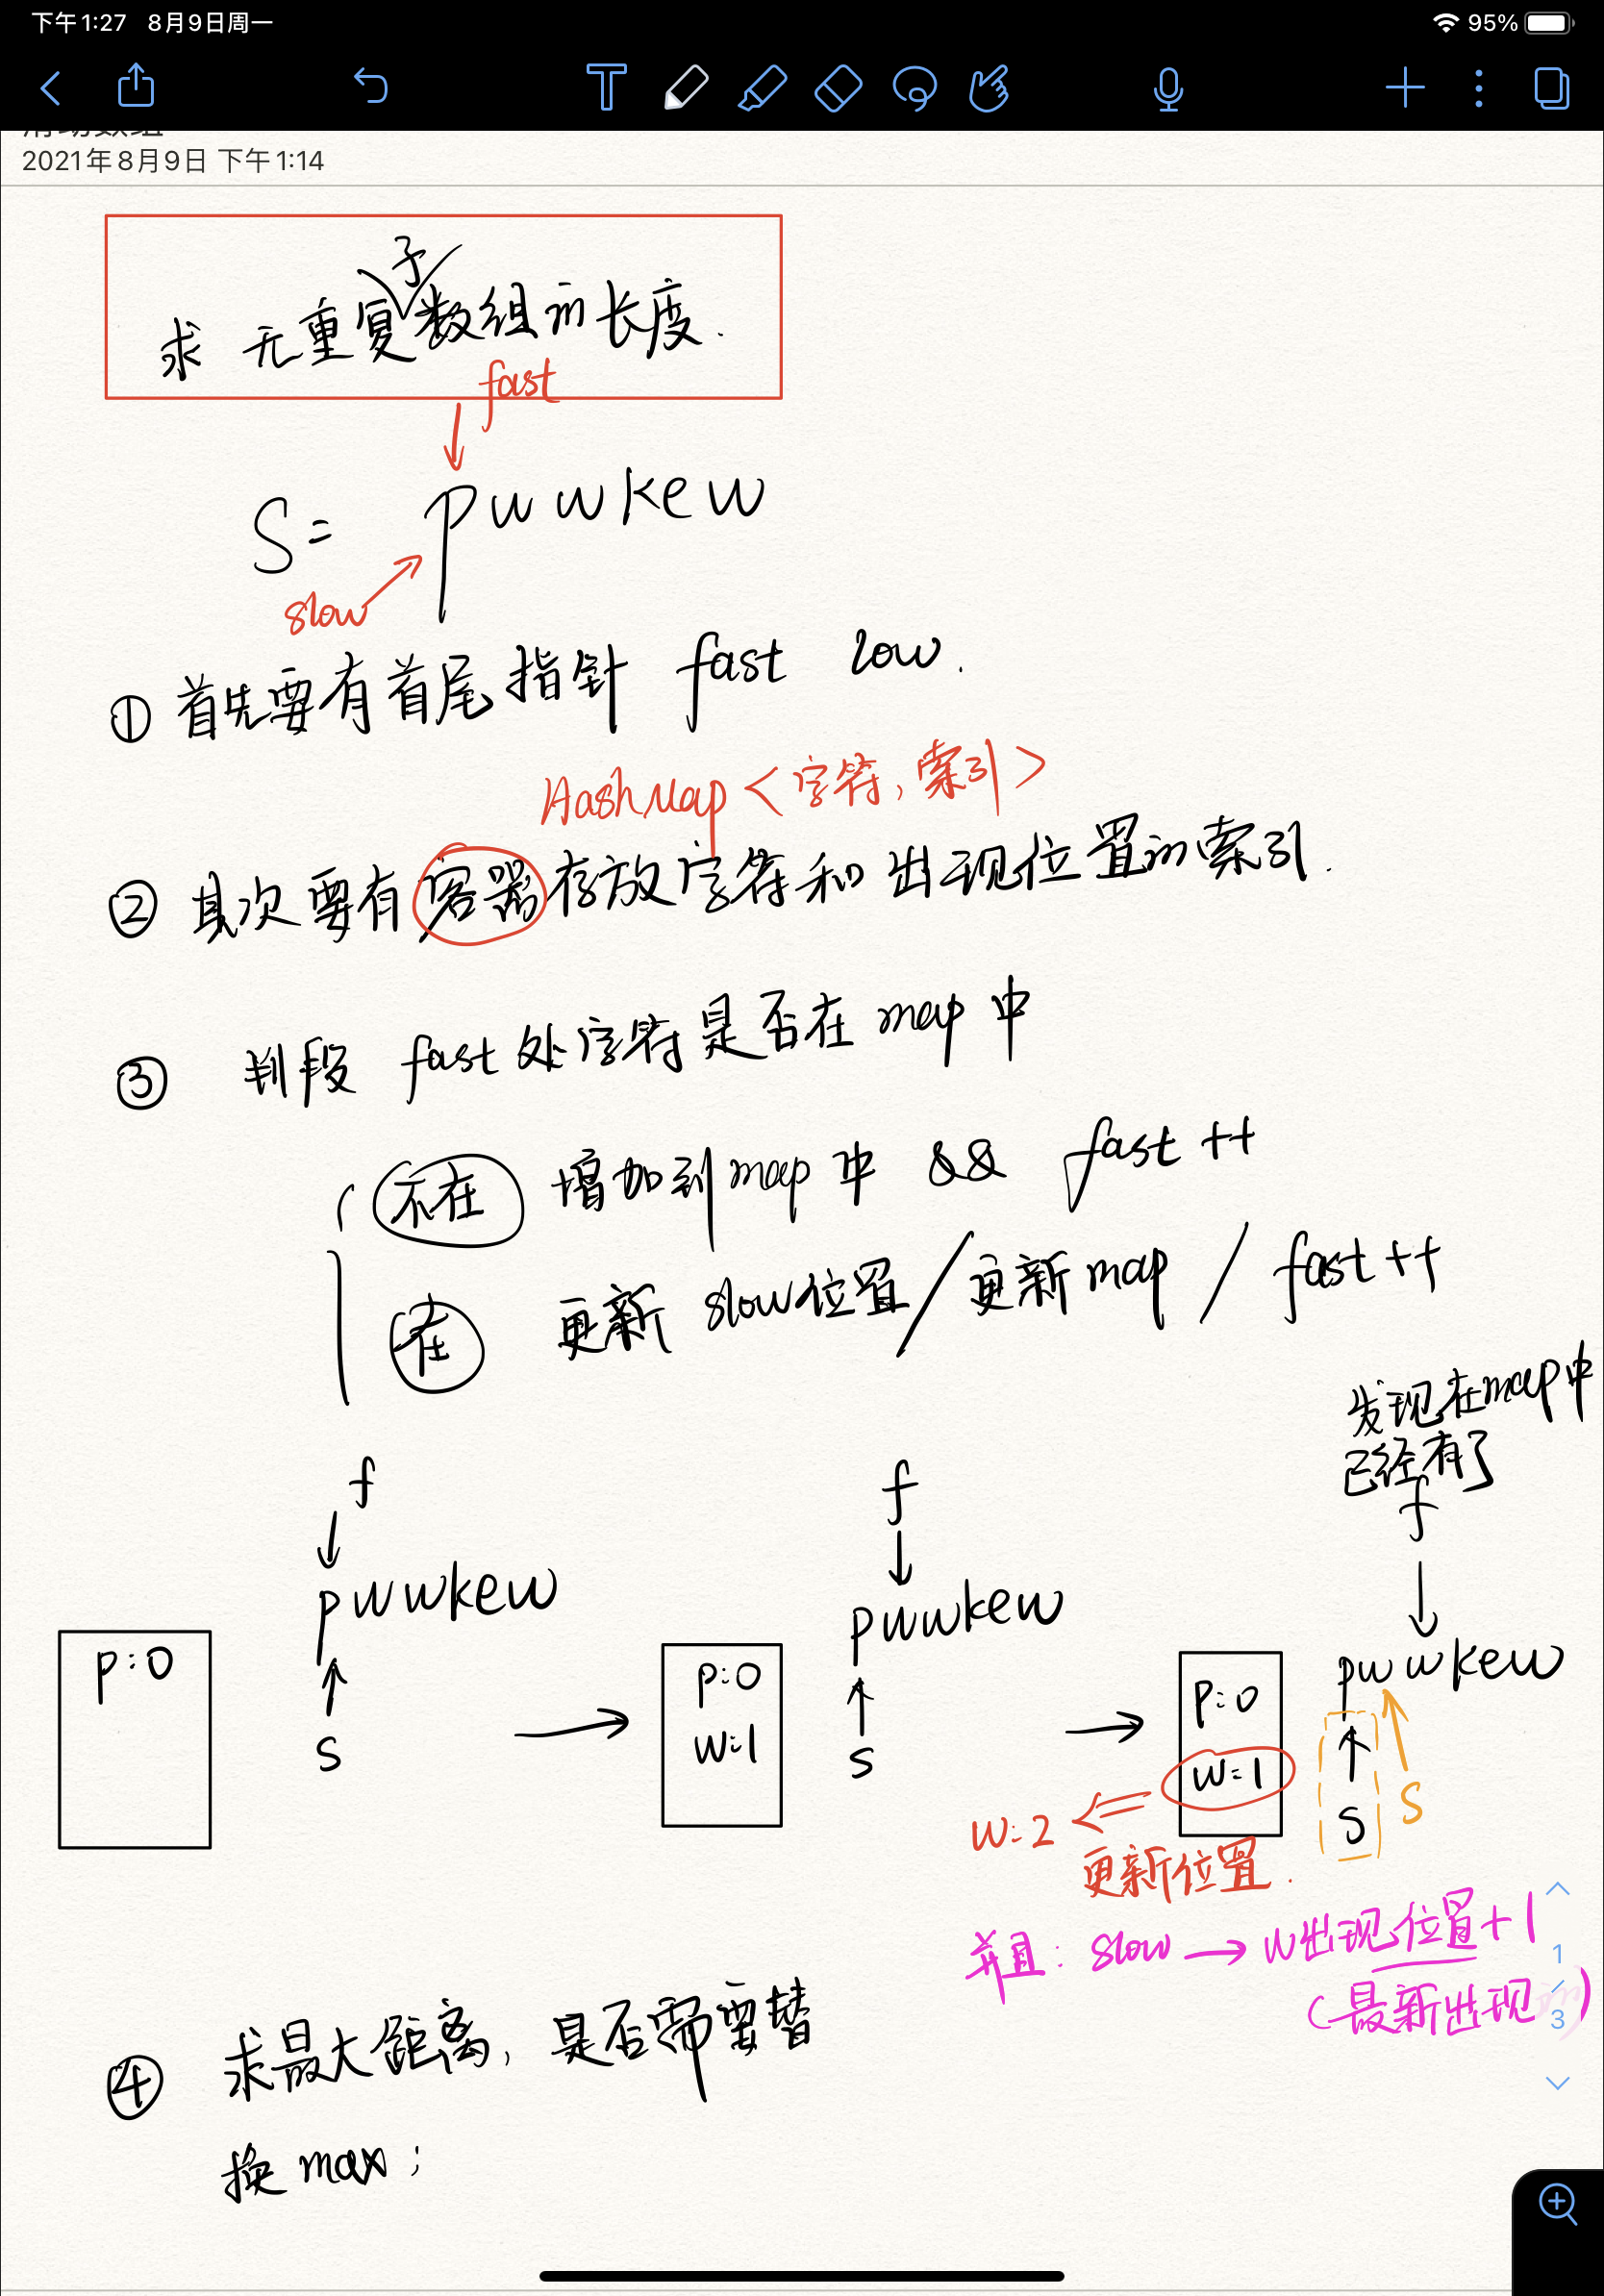 下午1:27 8月9日周一
95%
滑动数组
2021年8月9日 下午1:14
求 无重复子数组的长度.
fast
S= pwwkew
slow
① 首先要有首尾指针 fast low.
HashMap<字符,索引>
② 其次要有容器存放字符和出现位置的索引.
③ 判段 fast处字符是否在 map 中
不在 增加到map中 && fast ++
在 更新 slow位置/更新map / fast++
发现在map中
已经有了
f
f
f
pwwkew
pwwkew
pwwkew
p:0
p:0
w:1
p:0
w:1
s
s
s
s
w:2
更新位置.
并且: slow → w出现位置+1
(最新出现)
1
/
3
④ 求最大距离, 是否需要替
换 max;